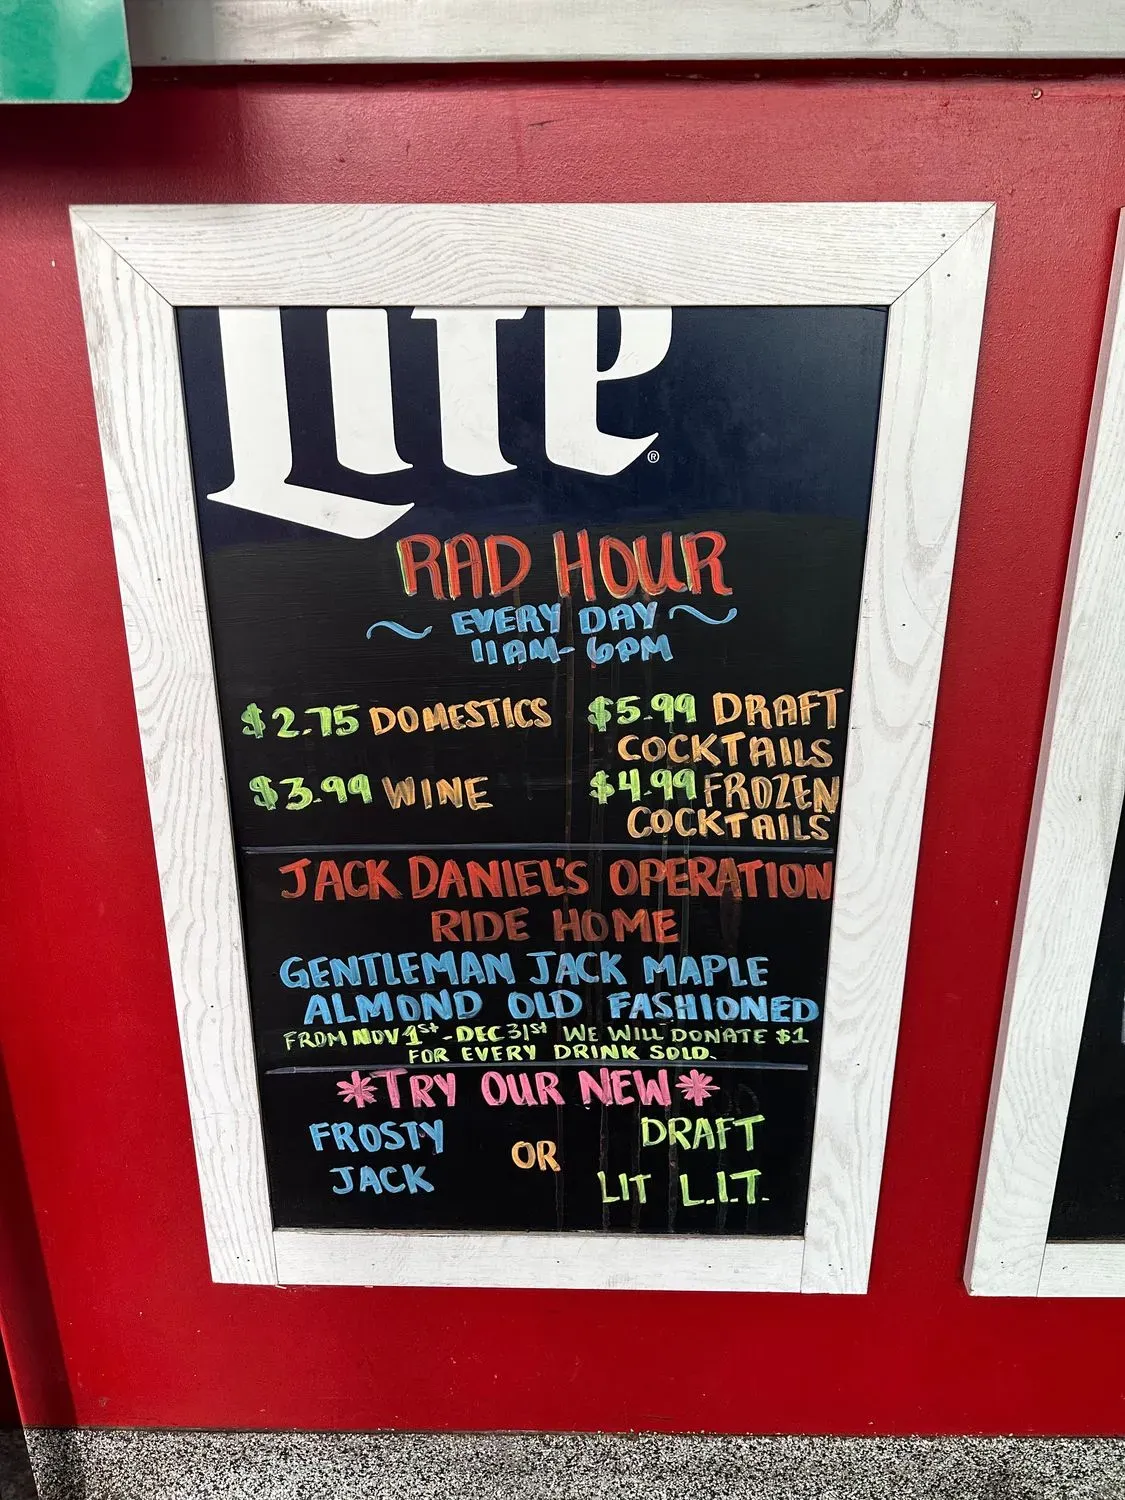 Lite®
RAD HOUR
~ EVERY DAY ~
11AM- 6PM
$2.75 DOMESTICS
$3.99 WINE
$5.99 DRAFT
COCKTAILS
$4.99 FROZEN
COCKTAILS
JACK DANIEL'S OPERATION
RIDE HOME
GENTLEMAN JACK MAPLE
ALMOND OLD FASHIONED
FROM NOV 1st - DEC 31st WE WILL DONATE $1
FOR EVERY DRINK SOLD.
*TRY OUR NEW*
FROSTY
JACK
OR
DRAFT
LIT L.I.T.